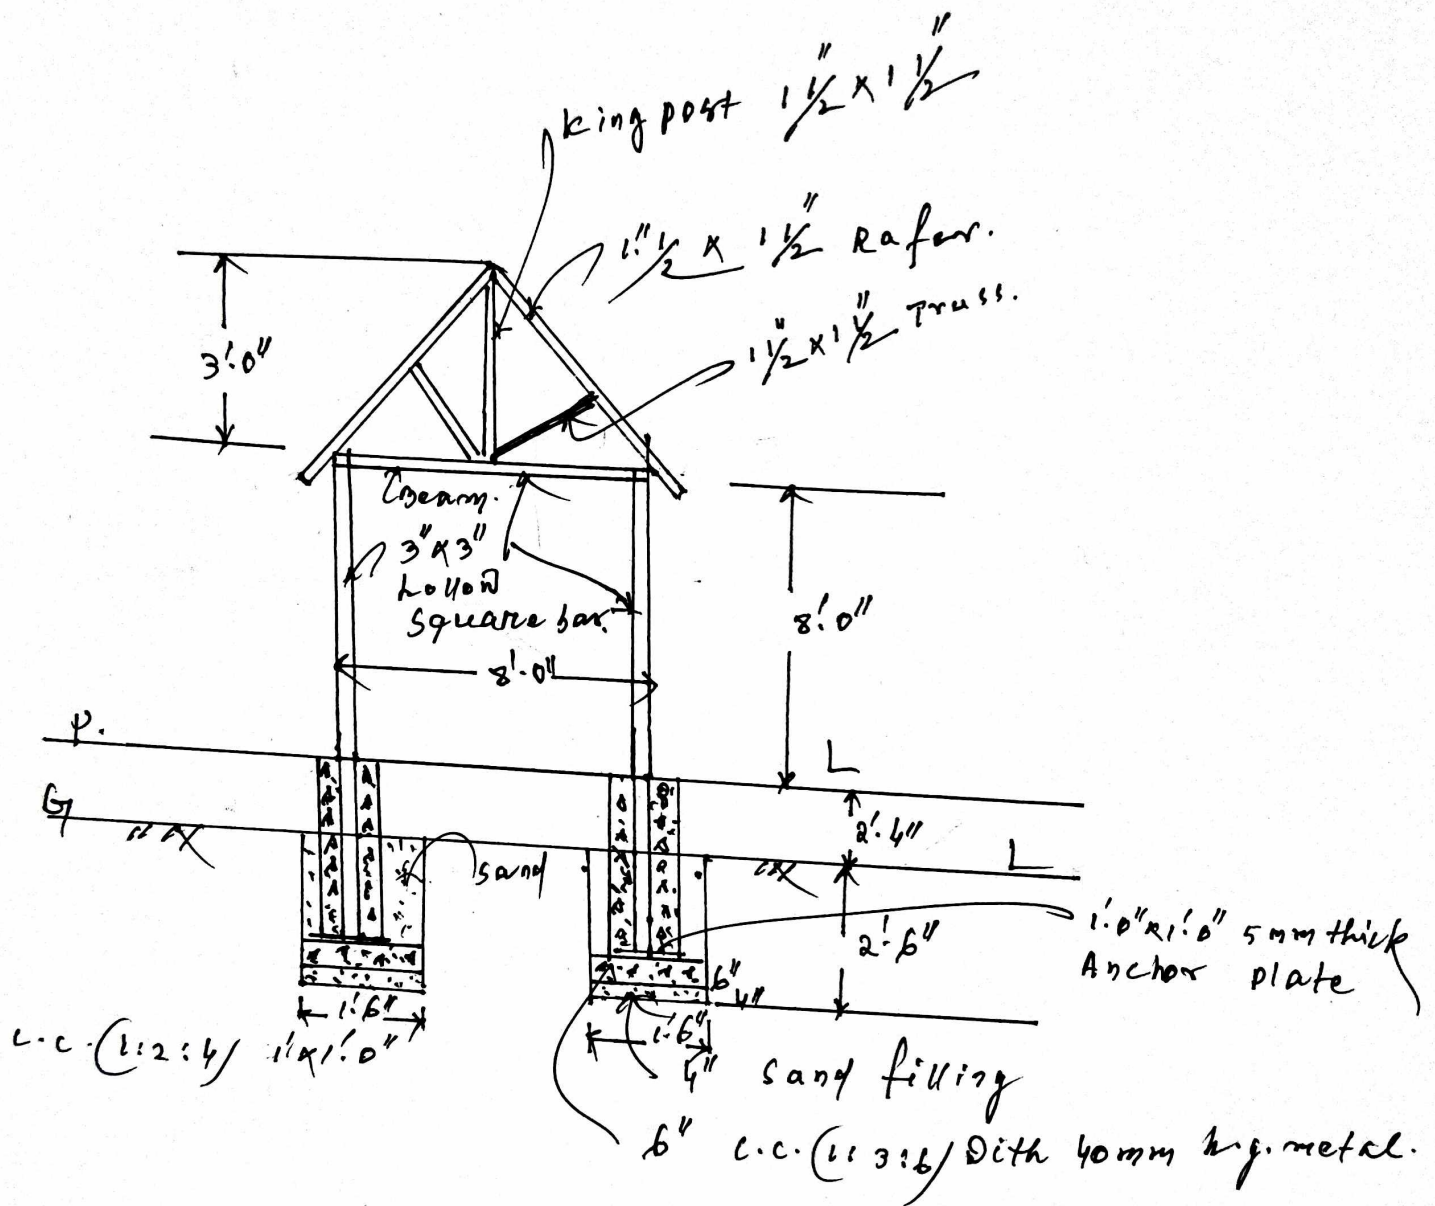 King post 1 1/2" x 1 1/2"
1" 1/2 x 1 1/2" Rafer.
1 1/2" x 1 1/2" Truss.
3'-0"
Beam.
3" x 3"
hollow
square bar.
8'-0"
8'-0"
P. L
G L
2'-4"
sand
2'-6"
1'-0" x 1'-0" 5mm thick
Anchor plate
6"
4"
1'-6"
1'-6"
c.c. (1:2:4) 1' x 1'-0"
4" sand filling
6" c.c. (1:3:6) with 40mm h.g. metal.